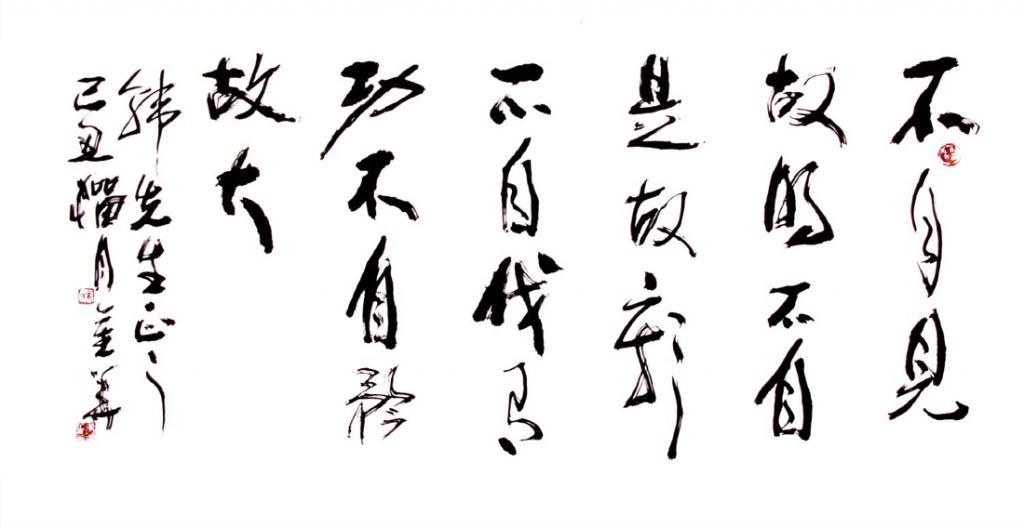 不自見
故明不自
是故彰
不自伐有
功不自矜
故大
先生正之
己丑臘月